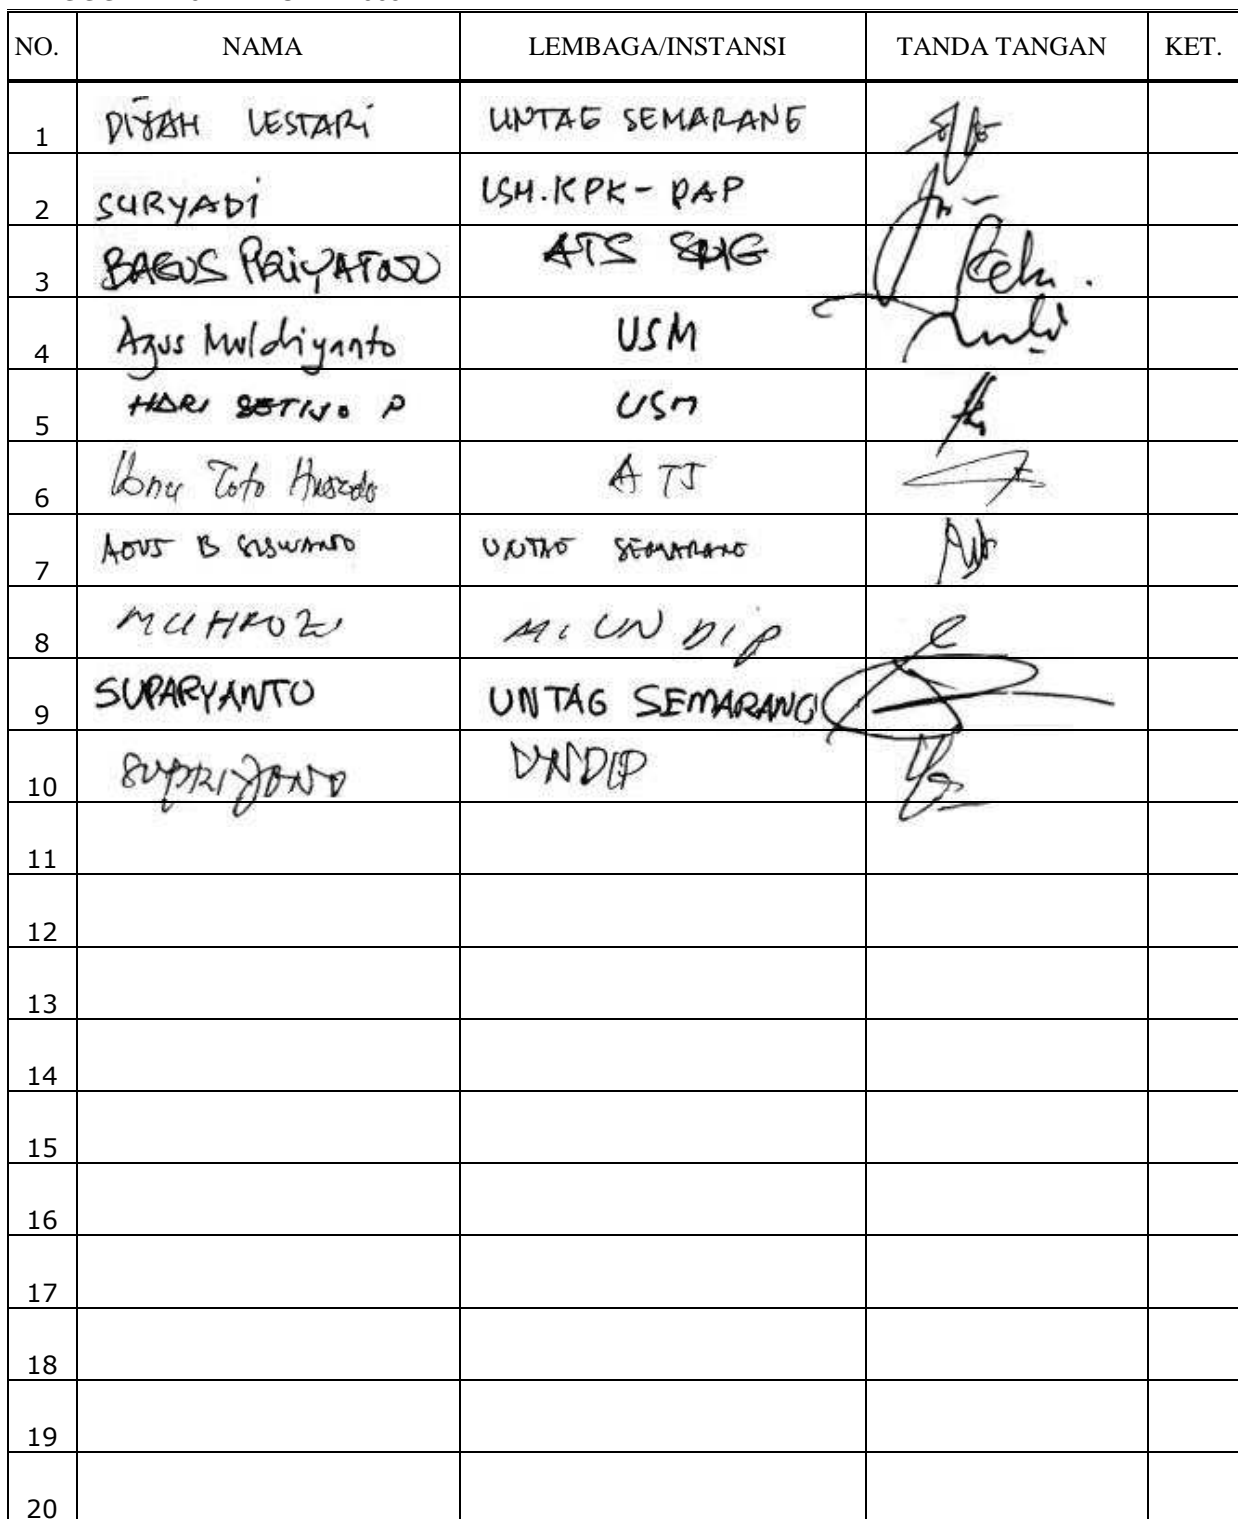 NO. NAMA LEMBAGA/INSTANSI TANDA TANGAN KET.
1 DIJAH LESTARI UNTAG SEMARANG
2 SURYADI USM.KPK-DAP
3 BAGUS PRIYATNO ATS SMG
4 Agus Muldiyanto USM
5 HARI SETIJO P USM
6 Toto ATS
7 AGUS B SISWANTO UNTAG SEMARANG
8 MUHROZI MI UNDIP
9 SUPARYANTO UNTAG SEMARANG
10 SUPRIJONO UNDIP
11
12
13
14
15
16
17
18
19
20